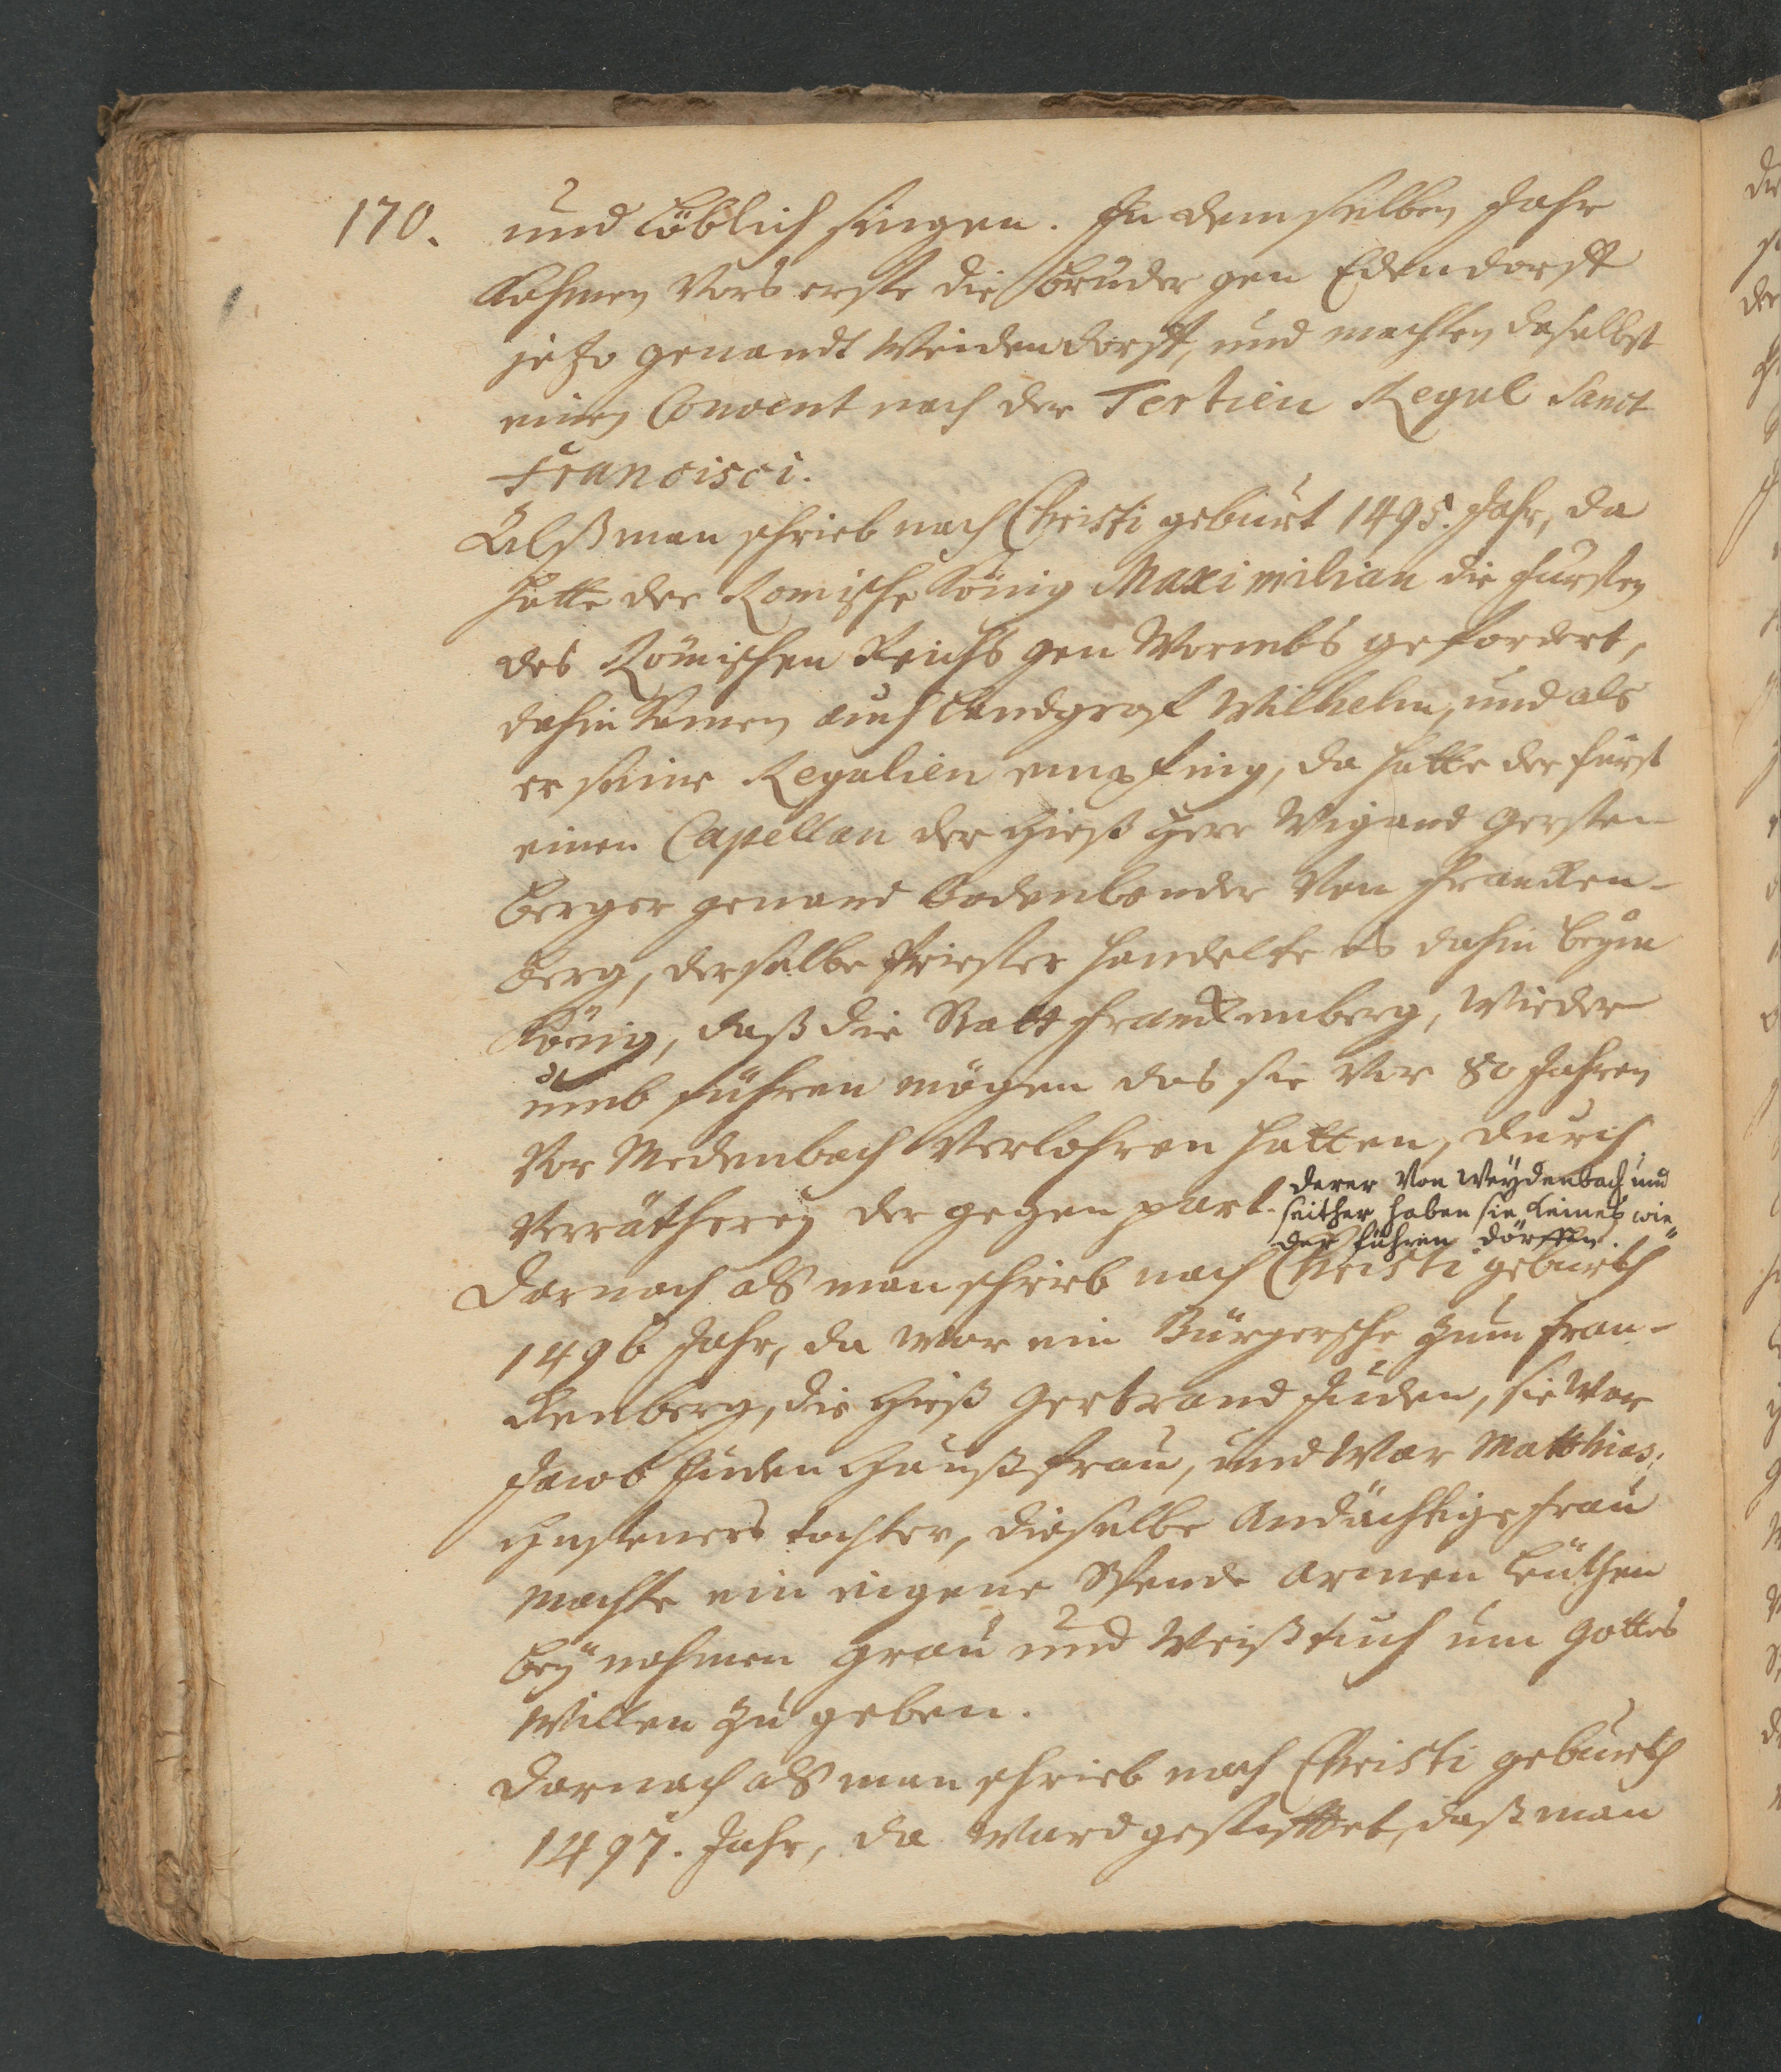 170. und Löblich singen. In dem selben Jahr
Kahmen vors erste die Brüder gen Edendorff
jezo genandt Weidendorff, und machten daselbst
einen Convent nach der Tertien Regul Sanct
Francisci.
Alß man schrieb nach Christi geburt 1495. Jahr, da
hatte der Romische König Maximilian die fursten
des Römischen Reichs gen Wormbs gefordert,
dahin kamen auch Landgraf Wilhelm, und als
er seine Regalien empfing, da hatte der fürst
einen Capellan der hieß Herr Wigand Gersten-
berger genand Bodenbender von Francken-
berg, derselbe Priester handelte es dahin beym
König, daß die Statt Franckenberg, wieder
umb führen mögen das sie vor 80 Jahren
vor Medenbach verlohren hatten, durch
verrätherey der gegen part. derer von Weydenbach und
seither haben sie keines wie-
der führen dörffen.
Darnach alß man schrieb nach Christi geburth
1496 Jahr, da war ein Bürgersche zum Fran-
ckenberg, die hieß Gertraud Juden, sie war
Jacob Juden Haußfrau, und war Matthias
tochter, dieselbe Andächtige Frau
machte ein eigene Spende armen Leuthen
bey nahmen grau und weiß tuch um Gottes
willen zu geben.
Darnach alß man schrieb nach Christi geburth
1497. Jahr, da ward gestifftet, daß man